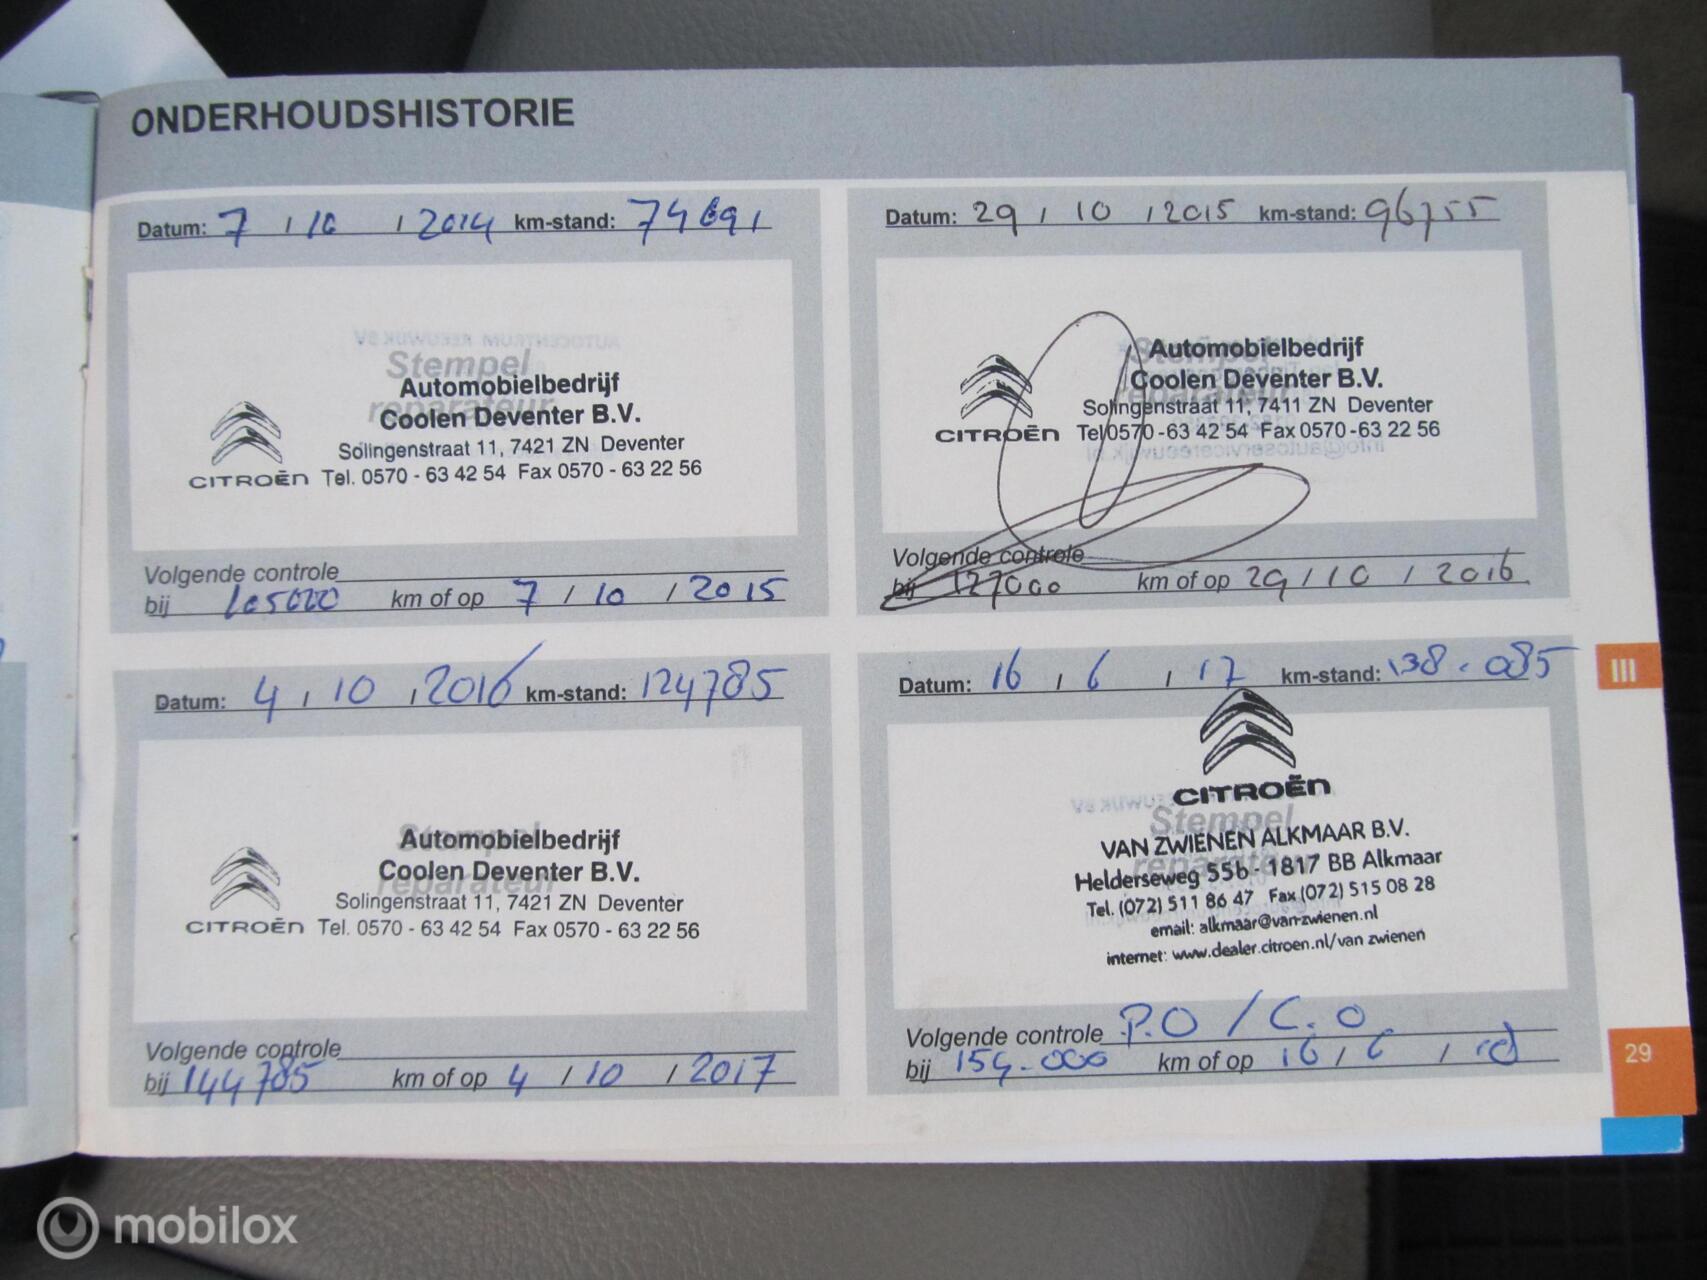 ONDERHOUDSHISTORIE
Datum: 7 / 10 / 2014 km-stand: 74691
Stempel
reparateur
Automobielbedrijf
Coolen Deventer B.V.
Solingenstraat 11, 7421 ZN Deventer
CITROËN Tel. 0570 - 63 42 54 Fax 0570 - 63 22 56
Volgende controle
bij 105000 km of op 7 / 10 / 2015
Datum: 29 / 10 / 2015 km-stand: 96755
Automobielbedrijf
Coolen Deventer B.V.
Solingenstraat 11, 7411 ZN Deventer
CITROËN Tel 0570 - 63 42 54 Fax 0570 - 63 22 56
Volgende controle
bij 127000 km of op 29 / 10 / 2016
Datum: 4 / 10 / 2016 km-stand: 124785
Stempel
reparateur
Automobielbedrijf
Coolen Deventer B.V.
Solingenstraat 11, 7421 ZN Deventer
CITROËN Tel. 0570 - 63 42 54 Fax 0570 - 63 22 56
Volgende controle
bij 144785 km of op 4 / 10 / 2017
Datum: 16 / 6 / 17 km-stand: 138.085
CITROËN
Stempel
reparateur
VAN ZWIENEN ALKMAAR B.V.
Helderseweg 55b - 1817 BB Alkmaar
Tel. (072) 511 86 47 Fax (072) 515 08 28
email: alkmaar@van-zwienen.nl
internet: www.dealer.citroen.nl/van zwienen
Volgende controle P.O / C.O
bij 154.000 km of op 16 / 6 /
III
29
mobilox